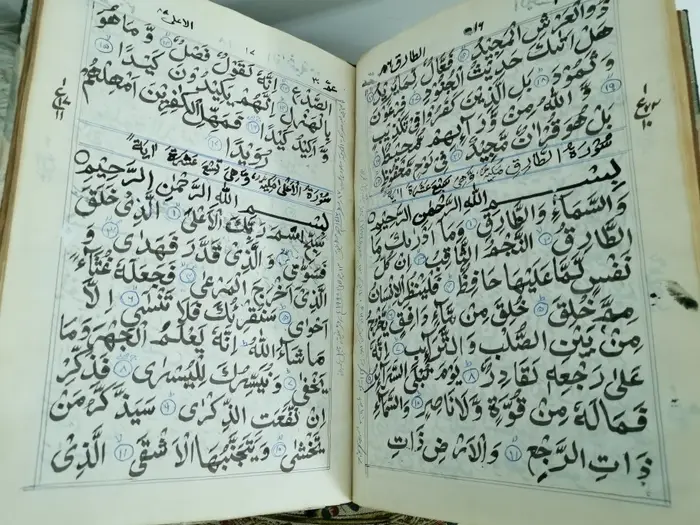 الطارق ٨٦
ذُو الْعَرْشِ الْمَجِيْدُ فَعَّالٌ لِّمَا يُرِيْدُ
هَلْ اَتٰىكَ حَدِيْثُ الْجُنُوْدِ ١٧ فِرْعَوْنَ
وَثَمُوْدَ ١٨ بَلِ الَّذِيْنَ كَفَرُوْا فِيْ تَكْذِيْبٍ ١٩
وَّ اللهُ مِنْ وَّرَآئِهِمْ مُّحِيْطٌ ٢٠
بَلْ هُوَ قُرْاٰنٌ مَّجِيْدٌ ٢١ فِيْ لَوْحٍ مَّحْفُوْظٍ
سُوْرَةُ الطَّارِقِ مَكِّيَّةٌ وَّهِيَ سَبْعَ عَشْرَةَ اٰيَةً
بِسْمِ اللهِ الرَّحْمٰنِ الرَّحِيْمِ
وَالسَّمَآءِ وَالطَّارِقِ ١ وَمَآ اَدْرٰىكَ مَا
الطَّارِقُ ٢ النَّجْمُ الثَّاقِبُ ٣ اِنْ كُلُّ
نَفْسٍ لَّمَّا عَلَيْهَا حَافِظٌ ٤ فَلْيَنْظُرِ الْاِنْسَانُ
مِمَّ خُلِقَ ٥ خُلِقَ مِنْ مَّآءٍ دَافِقٍ ٦ يَّخْرُجُ
مِنْۢ بَيْنِ الصُّلْبِ وَالتَّرَآئِبِ ٧ اِنَّهٗ
عَلٰى رَجْعِهٖ لَقَادِرٌ ٨ يَوْمَ تُبْلَى السَّرَآئِرُ ٩
فَمَا لَهٗ مِنْ قُوَّةٍ وَّلَا نَاصِرٍ ١٠ وَالسَّمَآءِ
ذَاتِ الرَّجْعِ ١١ وَالْاَرْضِ ذَاتِ
عمّ ٣٠
الاعلى ٨٧
الصَّدْعِ ١٢ اِنَّهٗ لَقَوْلٌ فَصْلٌ ١٣ وَّ مَا هُوَ
بِالْهَزْلِ ١٤ اِنَّهُمْ يَكِيْدُوْنَ كَيْدًا ١٥
وَّ اَكِيْدُ كَيْدًا ١٦ فَمَهِّلِ الْكٰفِرِيْنَ اَمْهِلْهُمْ
رُوَيْدًا ١٧
سُوْرَةُ الْاَعْلٰى مَكِّيَّةٌ وَّهِيَ تِسْعَ عَشْرَةَ اٰيَةً
بِسْمِ اللهِ الرَّحْمٰنِ الرَّحِيْمِ
سَبِّحِ اسْمَ رَبِّكَ الْاَعْلَى ١ الَّذِيْ خَلَقَ
فَسَوّٰى ٢ وَالَّذِيْ قَدَّرَ فَهَدٰى ٣ وَ
الَّذِيْٓ اَخْرَجَ الْمَرْعٰى ٤ فَجَعَلَهٗ غُثَآءً
اَحْوٰى ٥ سَنُقْرِئُكَ فَلَا تَنْسٰٓى ٦ اِلَّا
مَا شَآءَ اللهُ اِنَّهٗ يَعْلَمُ الْجَهْرَ وَمَا
يَخْفٰى ٧ وَنُيَسِّرُكَ لِلْيُسْرٰى ٨ فَذَكِّرْ
اِنْ نَّفَعَتِ الذِّكْرٰى ٩ سَيَذَّكَّرُ مَنْ
يَّخْشٰى ١٠ وَيَتَجَنَّبُهَا الْاَشْقَى ١١ الَّذِيْ